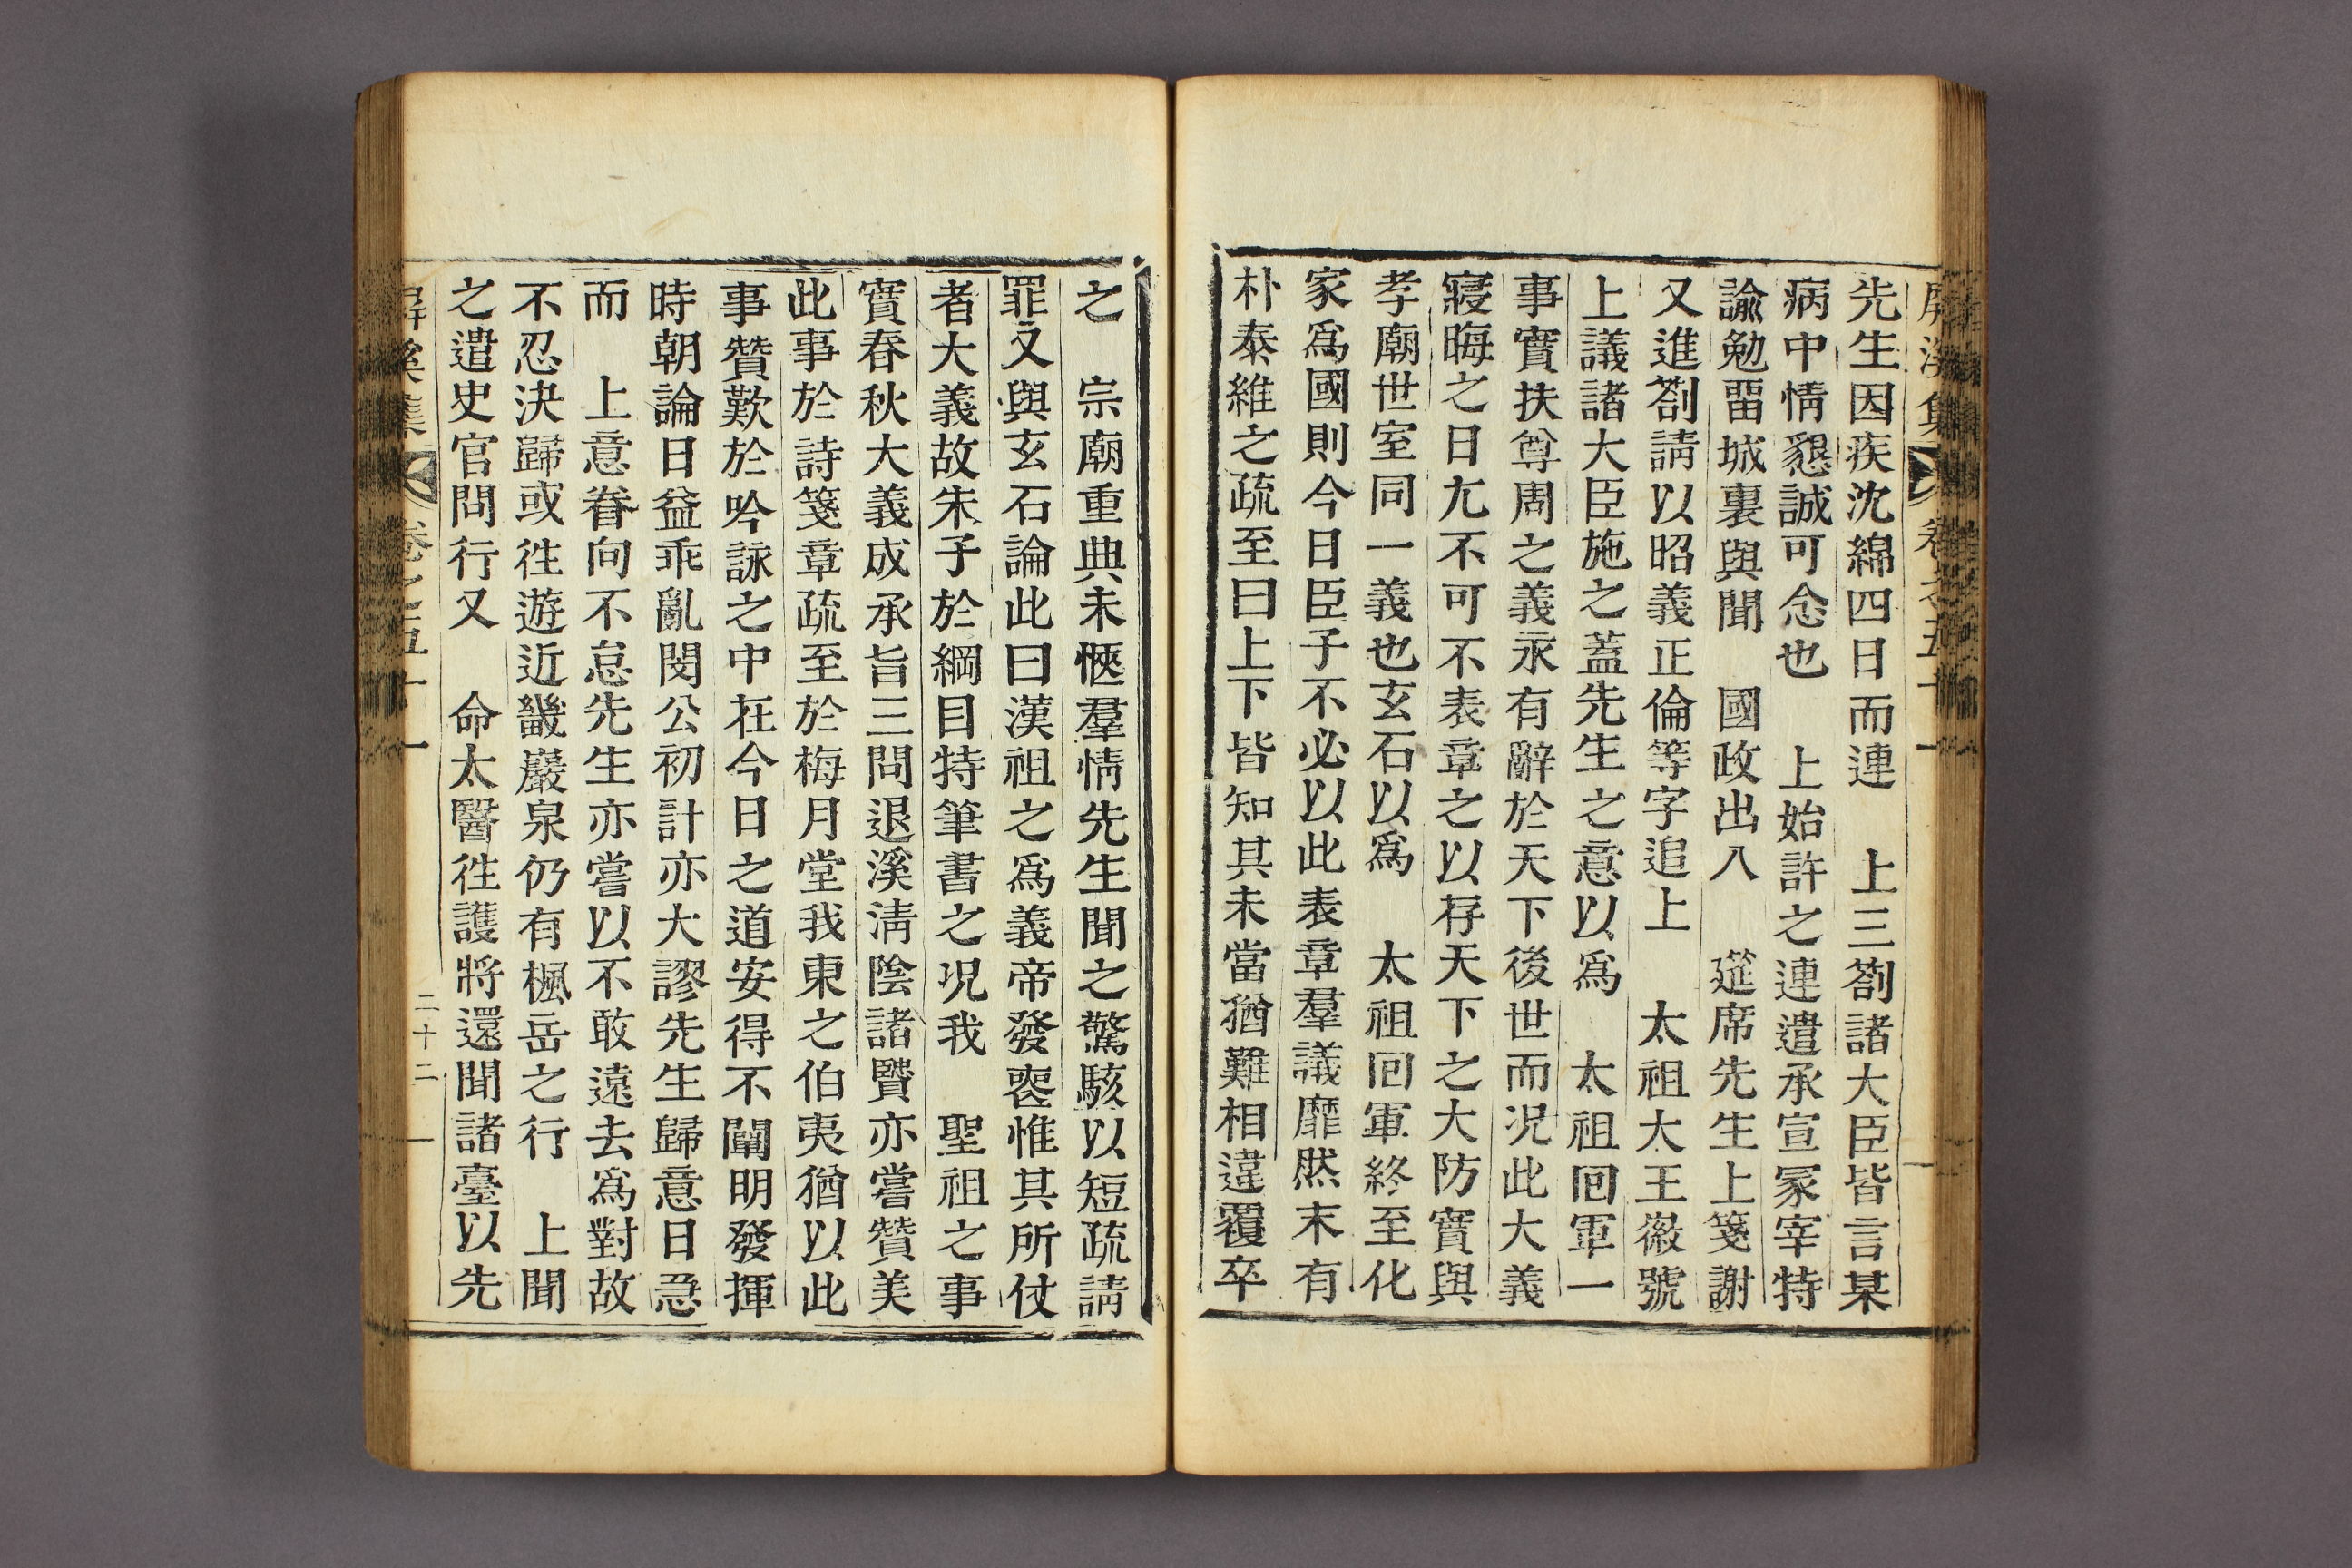 屏溪集 卷之五十一
先生因疾沈綿四日而連 上三劄諸大臣皆言某
病中情懇誠可念也 上始許之連遣承宣冢宰特
諭勉留城裏與聞 國政出入 筵席先生上箋謝
又進劄請以昭義正倫等字追上 太祖大王徽號
上議諸大臣施之蓋先生之意以爲 太祖回軍一
事實扶尊周之義永有辭於天下後世而况此大義
寢晦之日尤不可不表章之以存天下之大防實與
孝廟世室同一義也玄石以爲 太祖回軍終至化
家爲國則今日臣子不必以此表章羣議靡然末有
朴泰維之疏至曰上下皆知其未當猶難相違覆卒
之 宗廟重典未愜羣情先生聞之驚駭以短疏請
罪又與玄石論此曰漢祖之爲義帝發喪惟其所仗
者大義故朱子於綱目特筆書之况我 聖祖之事
實春秋大義成承旨三問退溪淸陰諸賢亦嘗贊美
此事於詩箋章疏至於梅月堂我東之伯夷猶以此
事贊歎於吟詠之中在今日之道安得不闡明發揮
時朝論日益乖亂閔公初計亦大謬先生歸意日急
而 上意眷向不怠先生亦嘗以不敢遠去爲對故
不忍決歸或徃遊近畿巖泉仍有楓岳之行 上聞
之遣史官問行又 命太醫徃護將還聞諸臺以先
屏溪集 卷之五十一 二十二